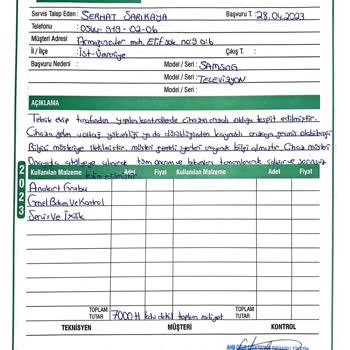 Servis Talep Eden : SERHAT SARIKAYA Başvuru T. : 28.04.2023
Telefonu : 0544-919-02-06
Müşteri Adresi : Armağanevler mh. Elif sok. no:9 D:6
İl / İlçe : İst-Ümraniye Çıkış T. :
Başvuru Nedeni : Model / Seri : SAMSNG
Model / Seri : TELEVİZYON
AÇIKLAMA
Teknik ekip tarafından yapılan kontrollerde cihazın arızalı olduğu tespit edilmiştir.
Cihaza gelen voltaj yüksekliği ya da düşüklüğünden kaynaklı arızaya geçmiş olabileceği
Bilgisi müşteriye iletilmiştir. müşteri gerekli yerleri arayarak bilgi almıştır. Cihaz müşteri
Onayıyla atölyeye alınarak tüm onarım ve bakımları tamamlanarak
2023
Kullanılan Malzeme Adet Fiyat Kullanılan Malzeme Adet Fiyat
Anakart Grubu
Genel Bakım Ve Kontrol
Servis Ve İşçilik
TOPLAM TUTAR 7000 tl kdv dahil toplam maliyet TOPLAM TUTAR
TEKNİSYEN MÜŞTERİ KONTROL